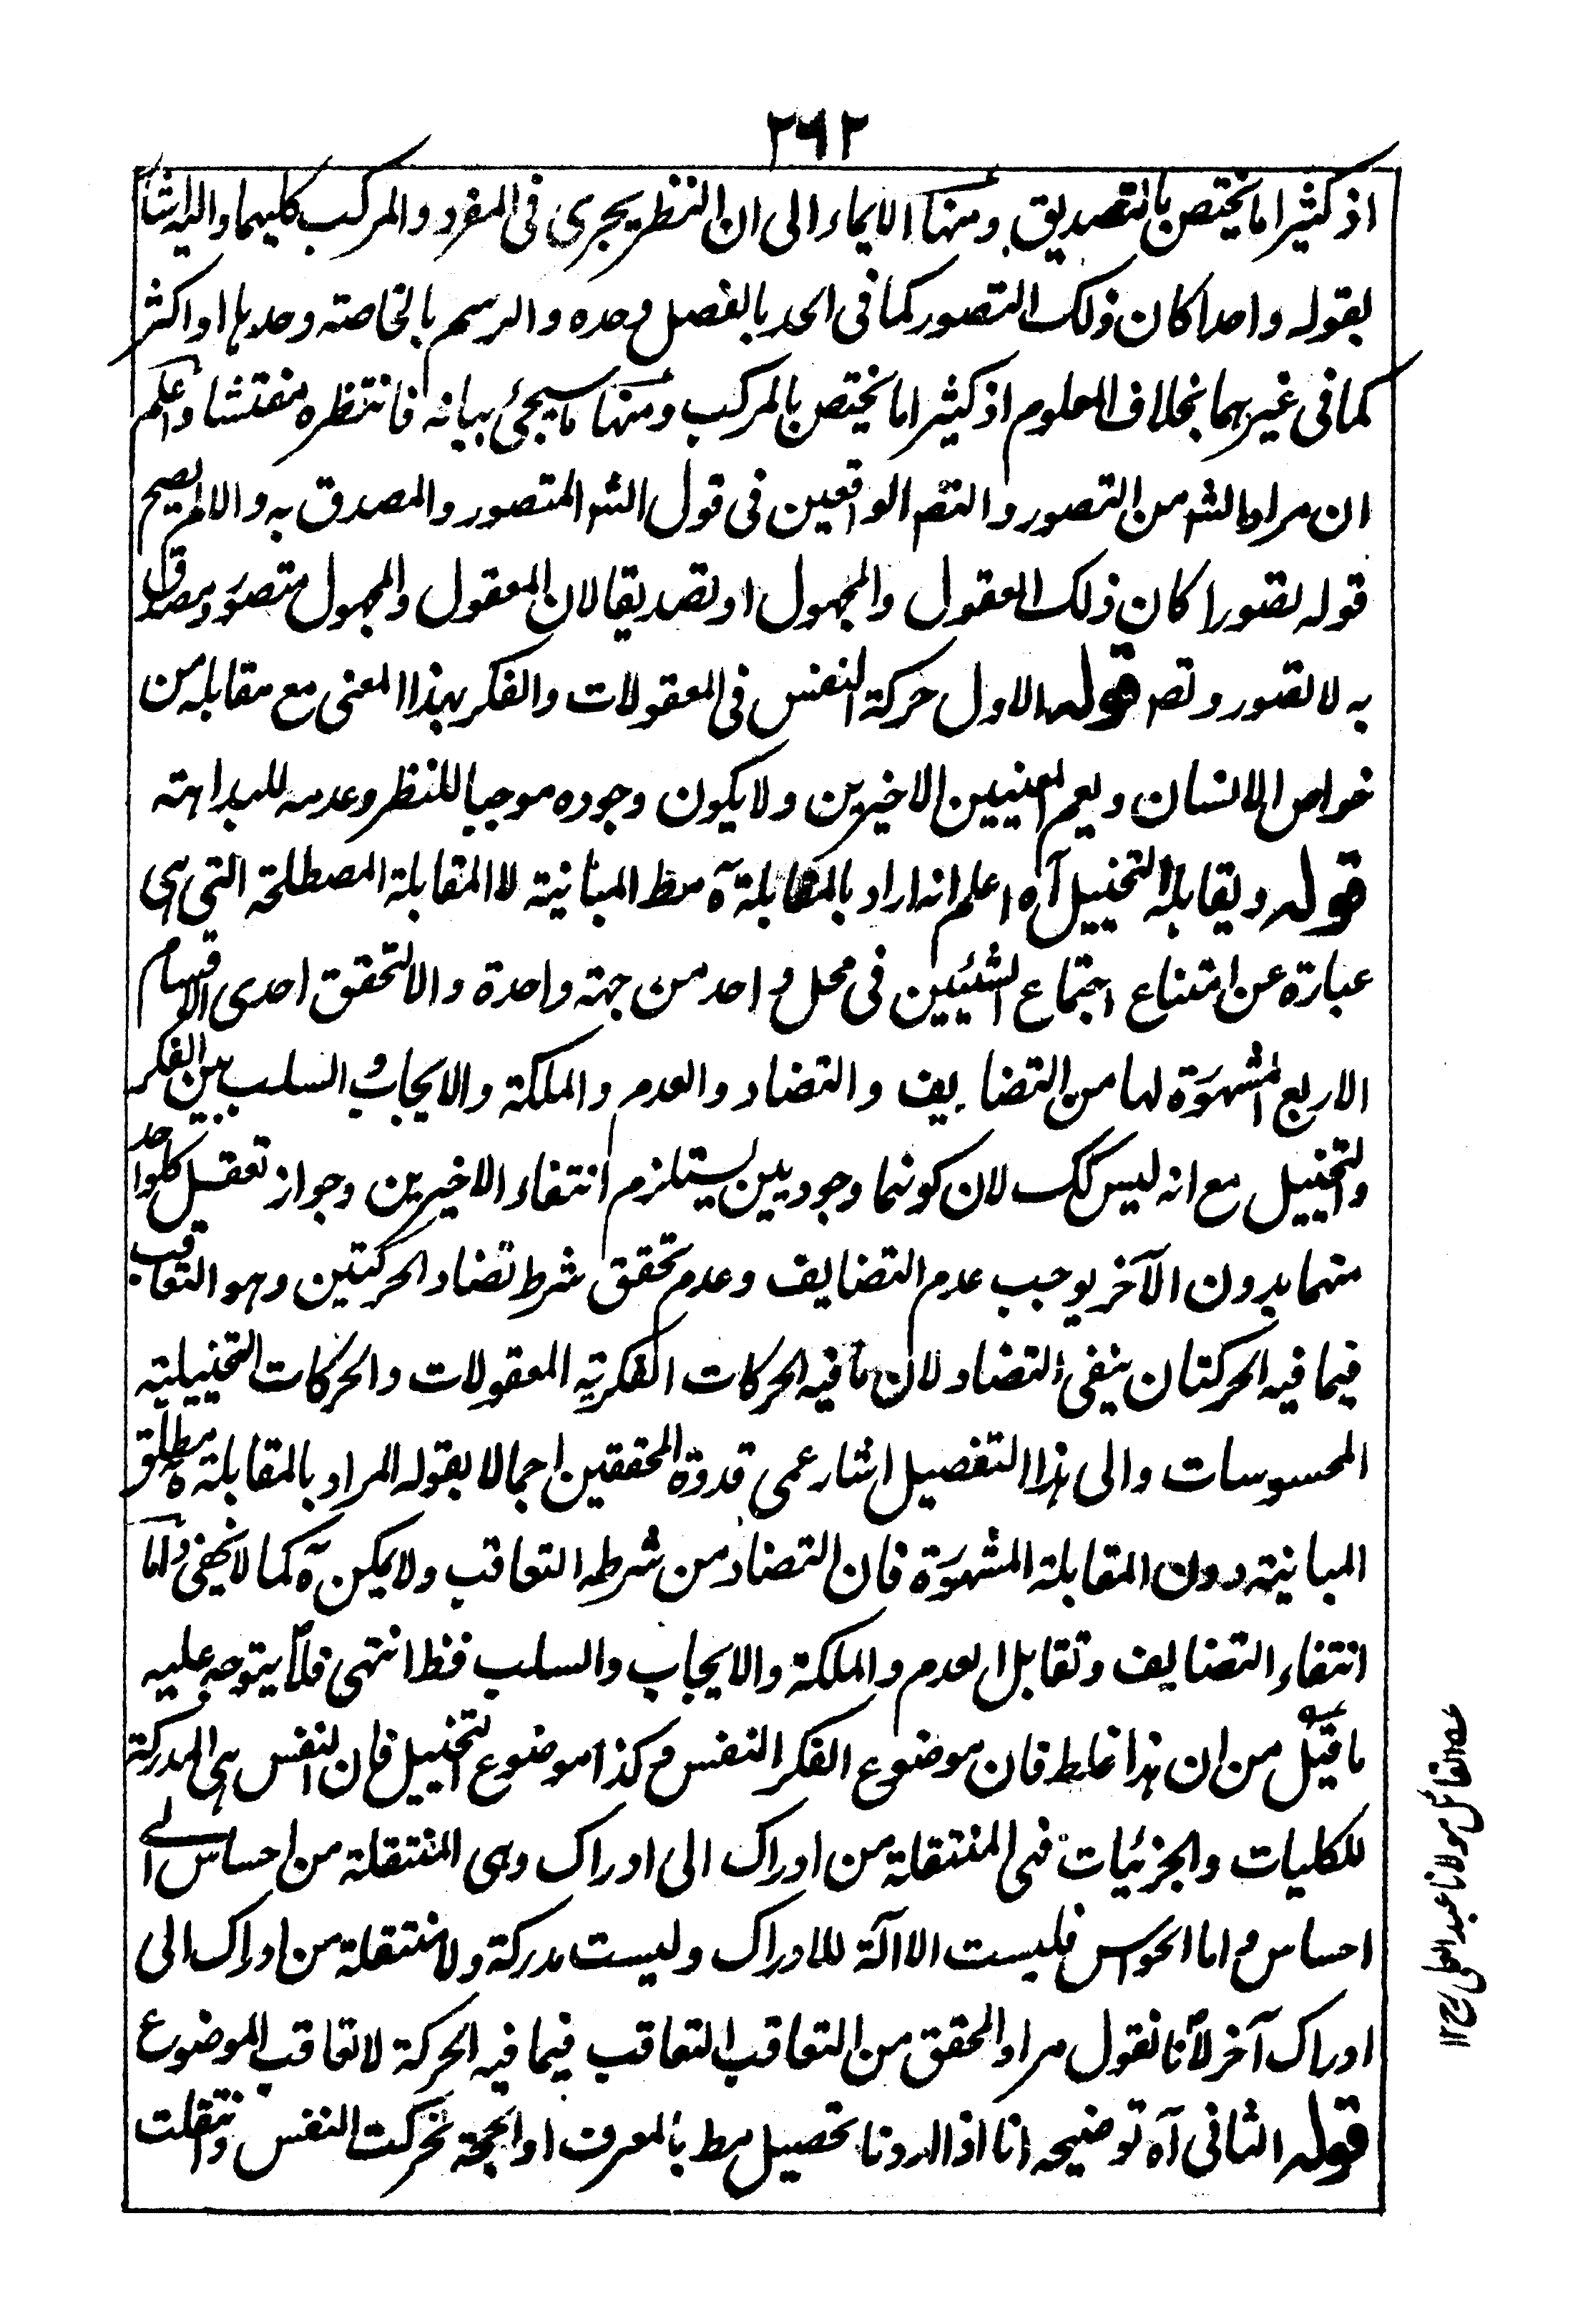 ٢٦٢
اذ كثيرا ما يختص بالتصديق ومنها الايماء الى ان النظر يجرى فى المفرد والمركب كليهما واليه اشا
بقوله واحدا كان ذلك التصور كما فى الحد بالفصل وحده والرسم بالخاصته وحدها او اكثر
كما فى غيرهما بخلاف المعلوم اذ كثيرا ما يختص بالمركب ومنها ما سيجئ بيانه فانتظره مفتشا واعلم
ان مراد الشم من التصور والتصم الواقعين فى قول الشم المتصور والمصدق به والا لم يصح
قوله تصورا كان ذلك المعقول والمجهول او تصديقا لان المعقول والمجهول متصور ومصدق
به لا تصور وتصم قوله الاول حركة النفس فى المعقولات والفكر بهذا المعنى مع مقابله من
خواص الانسان ويعم المعنيين الاخيرين ولا يكون وجوده موجبا للنظر وعدمه للبداهته
قوله ويقابله التخييل آه اعلم انه اراد بالمقابلة آه مط المبانية لا المقابلة المصطلحة التى هى
عبارة عن امتناع اجتماع الشيئين فى محل واحد من جهته واحدة والا لتحقق احدى الاقسام
الاربع المشهورة لها من التضايف والتضاد والعدم والملكة والايجاب والسلب بين الفكر
والتخييل مع انه ليس كك لان كونهما وجوديين يستلزم انتفاء الاخيرين وجواز تعقل كل واحد
منهما بدون الآخر يوجب عدم التضايف وعدم تحقق شرط تضاد الحركتين وهو التعاقب
فيما فيه الحركتان ينفى التضاد لان ما فيه الحركات الفكرية المعقولات والحركات التخييلية
المحسوسات والى هذا التفصيل اشار عمى قدوة المحققين اجمالا بقوله المراد بالمقابلة ه مطلق
المبانية دون المقابلة المشهورة فان التضاد من شرطه التعاقب ولا يمكن آه كما لا يخفى واما
انتفاء التضايف وتقابل العدم والملكة والايجاب والسلب فظ انتهى فلا يتوجه عليه
ما قيل من ان هذا غلط فان موضوع الفكر النفس وكذا موضوع التخييل فان النفس هى المدركة
للكليات والجزئيات فهى المنتقلة من ادراك الى ادراك وهى المنتقلة من احساس الى
احساس واما الحواس فليست الا آلة للادراك وليست مدركة ولا منتقلة من ادراك الى
ادراك آخر لانا نقول مراد المحقق من التعاقب التعاقب فيما فيه الحركة لا تعاقب الموضوع
قوله الثانى آه توضيحه انا اذا اردنا تحصيل مط بالمعرف او الحجة تحركت النفس وانتقلت
عه القائل مولانا عبد العلى ١٢